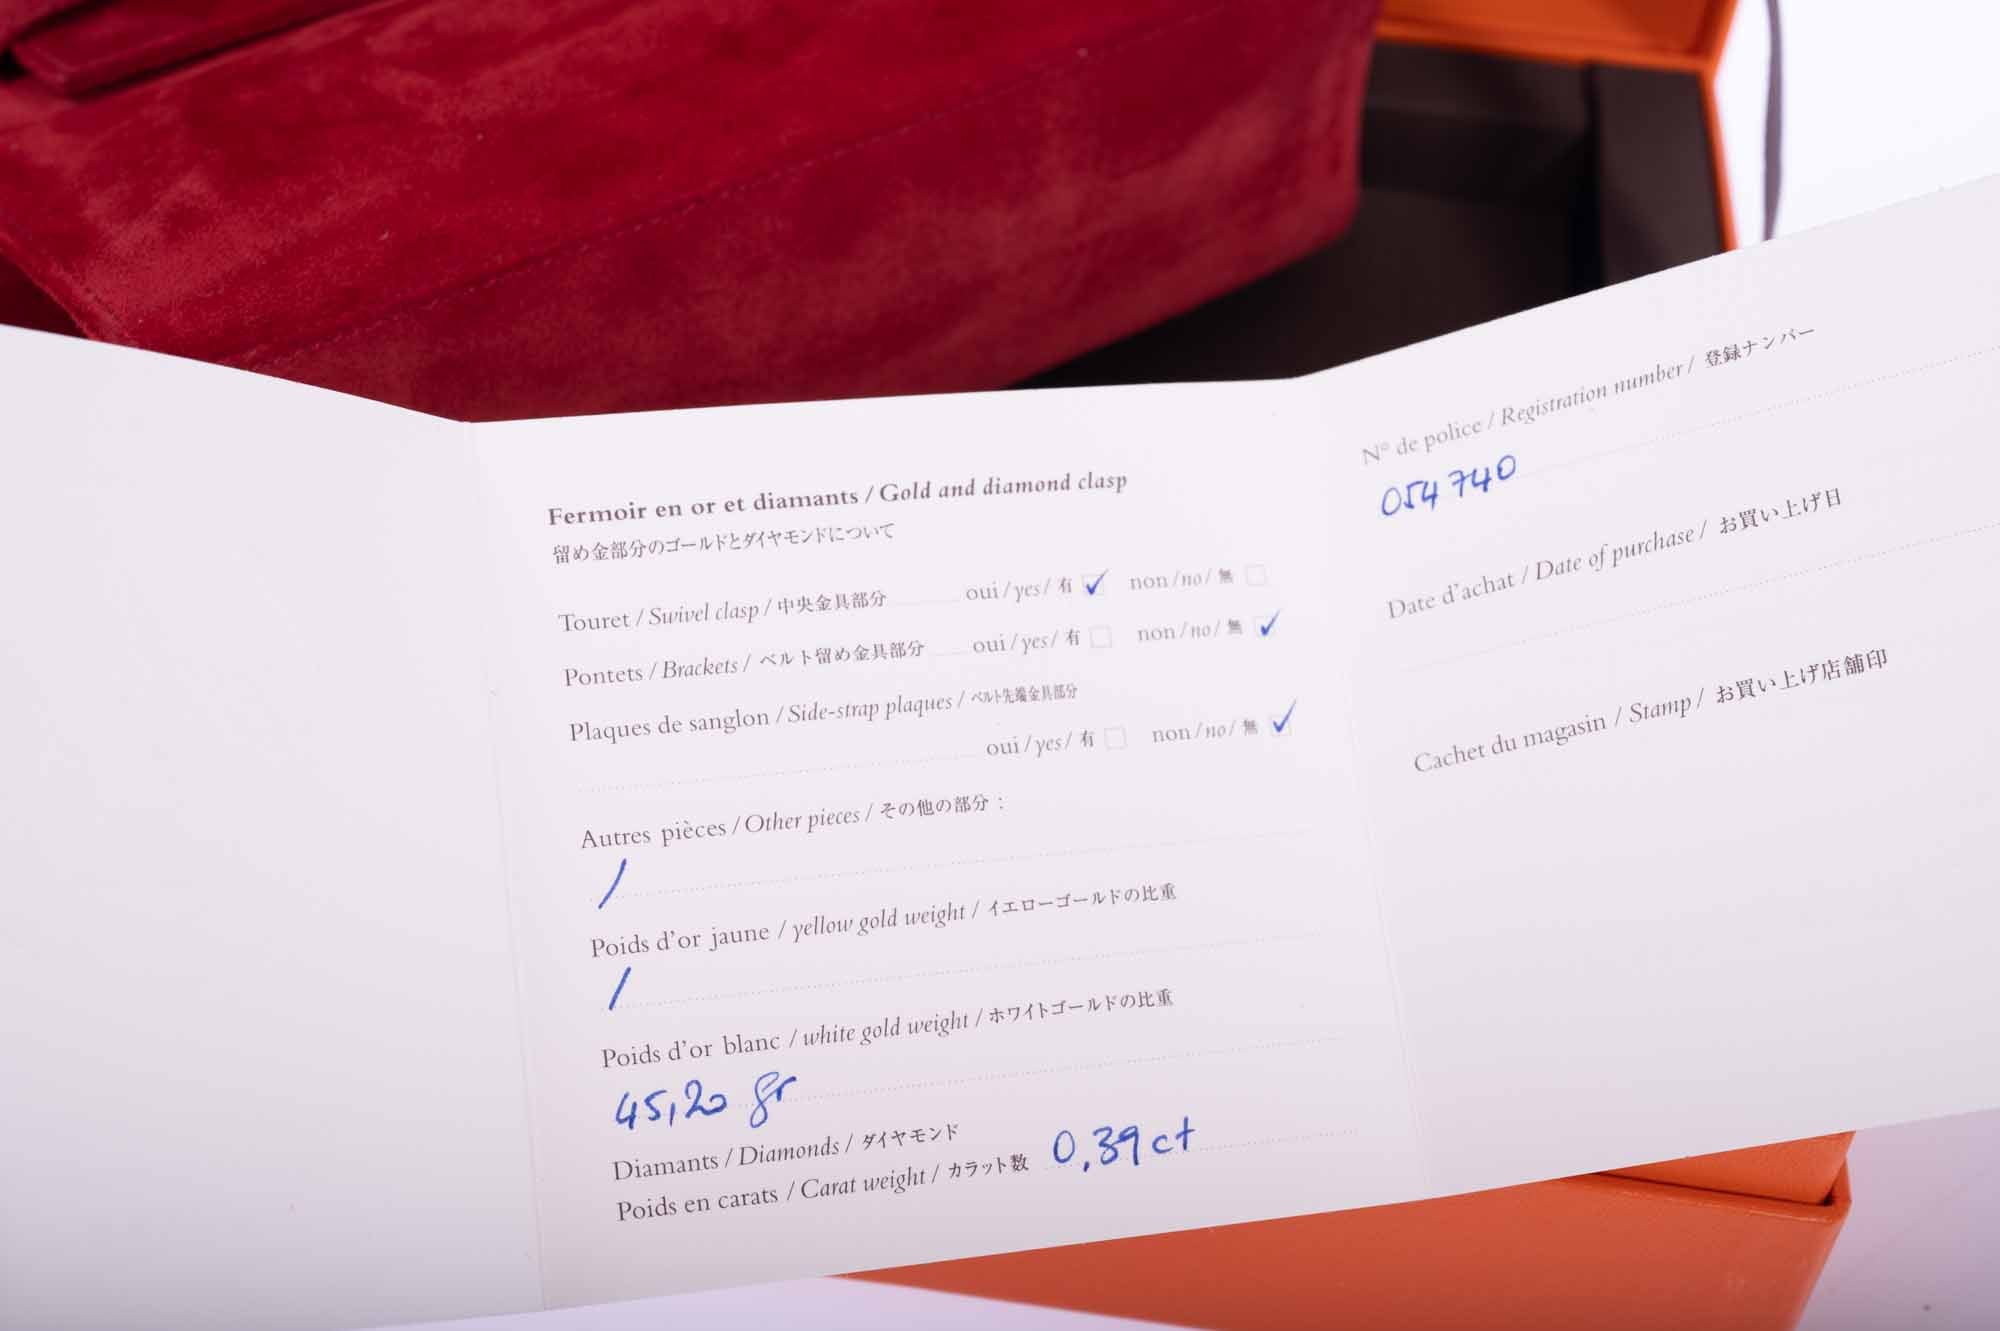 Fermoir en or et diamants / Gold and diamond clasp
留め金部分のゴールドとダイヤモンドについて
Touret / Swivel clasp / 中央金具部分 oui / yes / 有 ✓ non / no / 無 ☐
Pontets / Brackets / ベルト留め金具部分 oui / yes / 有 ☐ non / no / 無 ✓
Plaques de sanglon / Side-strap plaques / ベルト先端金具部分
oui / yes / 有 ☐ non / no / 無 ✓
Autres pièces / Other pieces / その他の部分 :
/
Poids d'or jaune / yellow gold weight / イエローゴールドの比重
/
Poids d'or blanc / white gold weight / ホワイトゴールドの比重
45,20 gr
Diamants / Diamonds / ダイヤモンド
Poids en carats / Carat weight / カラット数 0,39 ct
N° de police / Registration number / 登録ナンバー
054740
Date d'achat / Date of purchase / お買い上げ日
Cachet du magasin / Stamp / お買い上げ店舗印